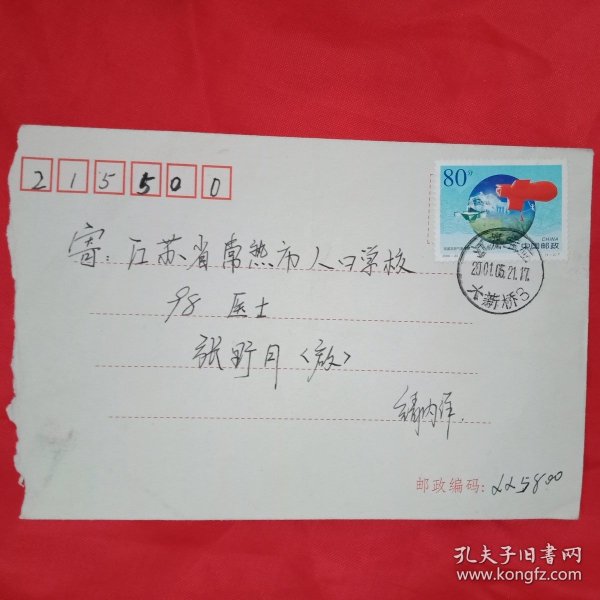 215500
80分
CHINA
中国邮政
2001.05.21.17.
大新桥3
寄：江苏省常熟市人口学校
98 医士
张野月〈启〉
邮政编码：225800
孔夫子旧书网
www.kongfz.com